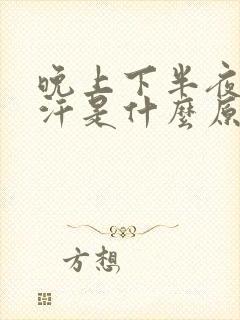 晚上下半夜
汗是什麼原
方想